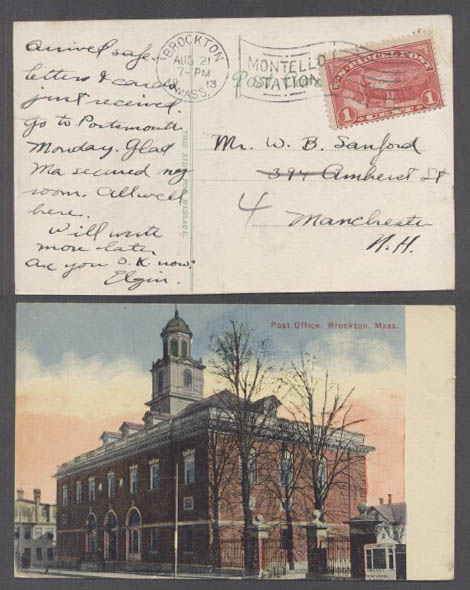 Arrived safe
letters & cards
just received.
go to Portsmouth
Monday. Glad
Ma secured my
room. All well
here.
Will write
more later.
Are you O.K. now?
Elgin.
THIS SIDE FOR MESSAGE
BROCKTON
AUG 21
7-PM
13
MASS.
MONTELLO
STATION
Post Card
U.S. PARCEL POST
1
1
CENT
Mr. W. B. Sanford
394 Amherst St
4
Manchester
N.H.
Post Office, Brockton, Mass.